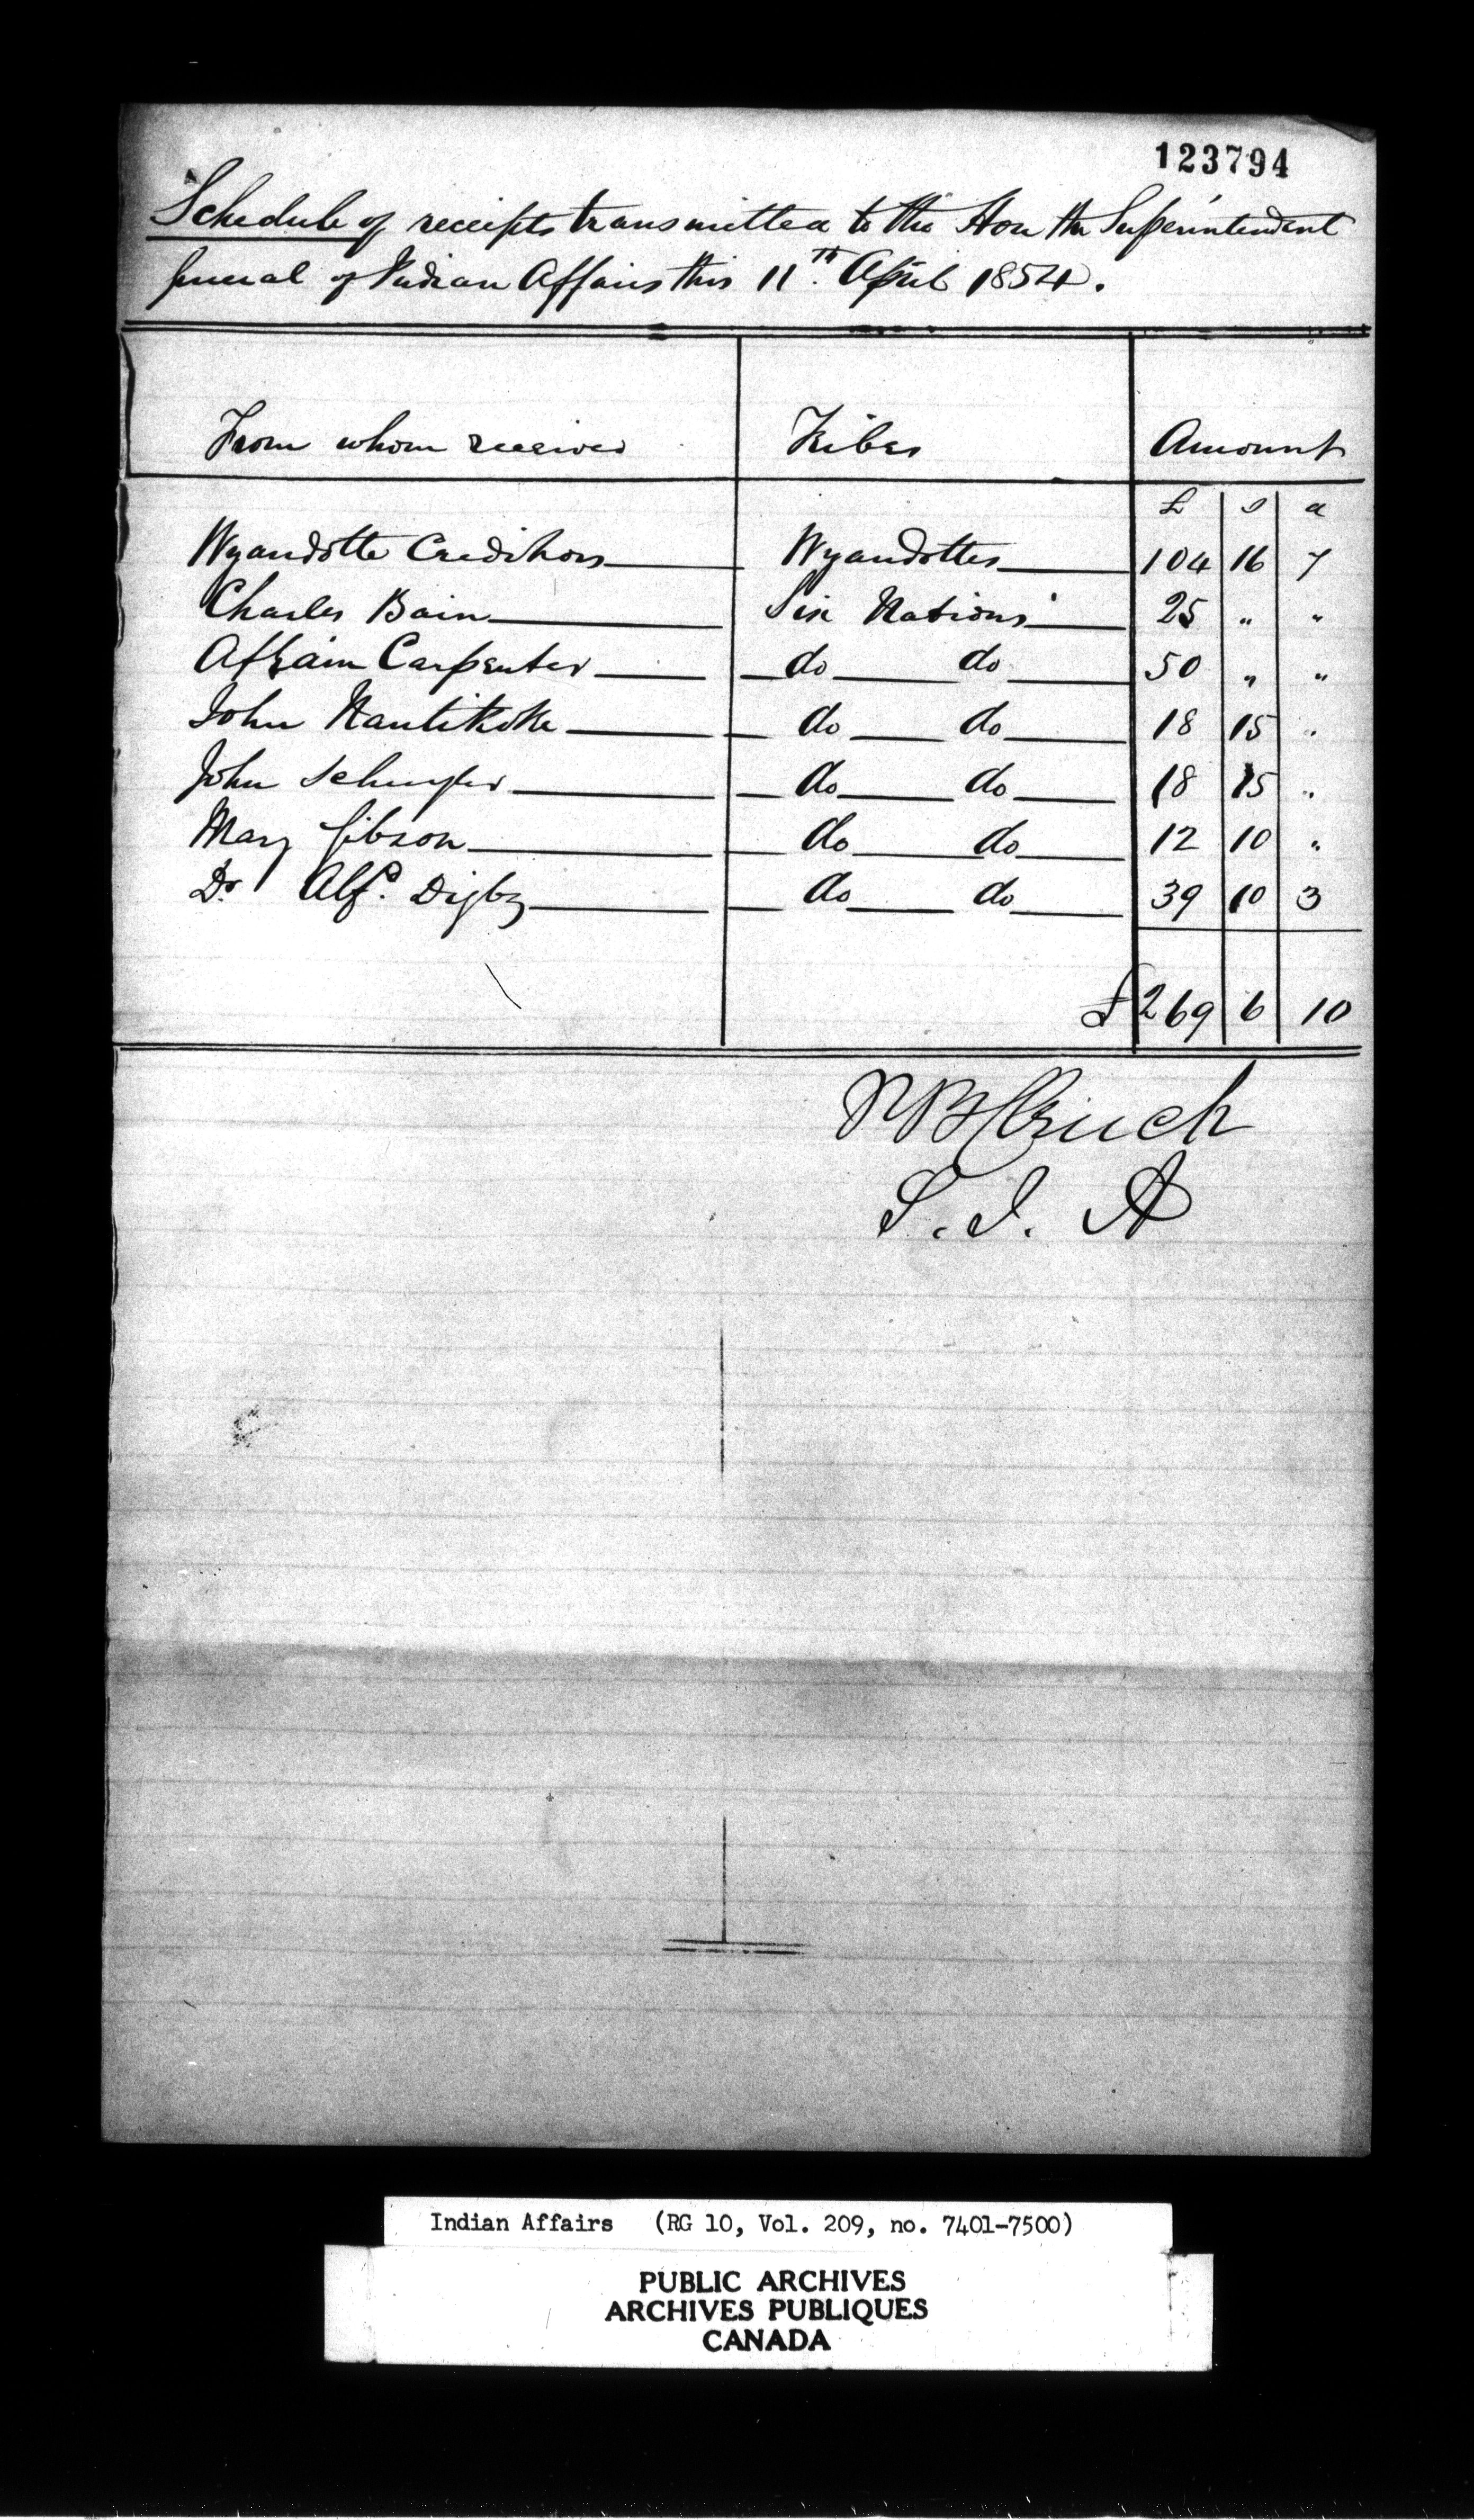 123794
Schedule of receipts transmitted to the Hon the Superintendent
General of Indian Affairs this 11th. April 1854.
From whom received Tribes Amount
£ s d
Wyandotte Creditors Wyandottes 104 16 7
Charles Bain Six Nations 25 " "
Carpenter do do 50 " "
John Nantikoke do do 18 15 "
John do do 18 15 "
Mary Gibson do do 12 10 "
Dr. Alfd. Digby do do 39 10 3
£ 269 6 10
S. I. A
Indian Affairs (RG 10, Vol. 209, no. 7401-7500)
PUBLIC ARCHIVES
ARCHIVES PUBLIQUES
CANADA